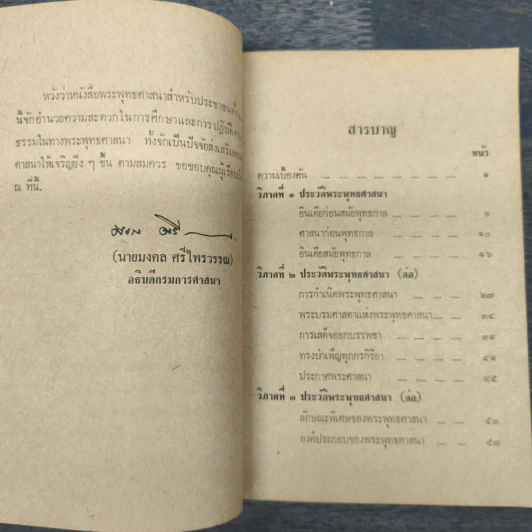 หวังว่าหนังสือพระพุทธศาสนาสำหรับประชาชน
นี้จักอำนวยความสะดวกในการศึกษาและการปฏิบัติ
ธรรมในทางพระพุทธศาสนา ทั้งจักเป็นปัจจัยส่งเสริม
ศาสนาให้เจริญยิ่ง ๆ ขึ้น ตามสมควร ขอขอบคุณผู้เรียบเรียง
ณ ที่นี้
(นายมงคล ศรีไพรวรรณ)
อธิบดีกรมการศาสนา
สารบาญ
หน้า
ความเบื้องต้น .... .... .... .... ๑
วิภาคที่ ๑ ประวัติพระพุทธศาสนา
อินเดียก่อนสมัยพุทธกาล .... .... .... ๖
ศาสนาก่อนพุทธกาล .... .... .... ๑๐
อินเดียสมัยพุทธกาล .... .... .... ๑๖
วิภาคที่ ๒ ประวัติพระพุทธศาสนา (ต่อ)
การกำเนิดพระพุทธศาสนา .... .... .... ๒๗
พระบรมศาสดาแห่งพระพุทธศาสนา .... .... ๓๔
การเสด็จออกบรรพชา .... .... .... ๓๙
ทรงบำเพ็ญทุกกรกิริยา .... .... .... ๔๑
ประกาศพระศาสนา .... .... .... ๔๕
วิภาคที่ ๓ ประวัติพระพุทธศาสนา (ต่อ)
ลักษณะพิเศษของพระพุทธศาสนา .... .... ๕๓
องค์ประกอบของพระพุทธศาสนา .... .... ๕๘